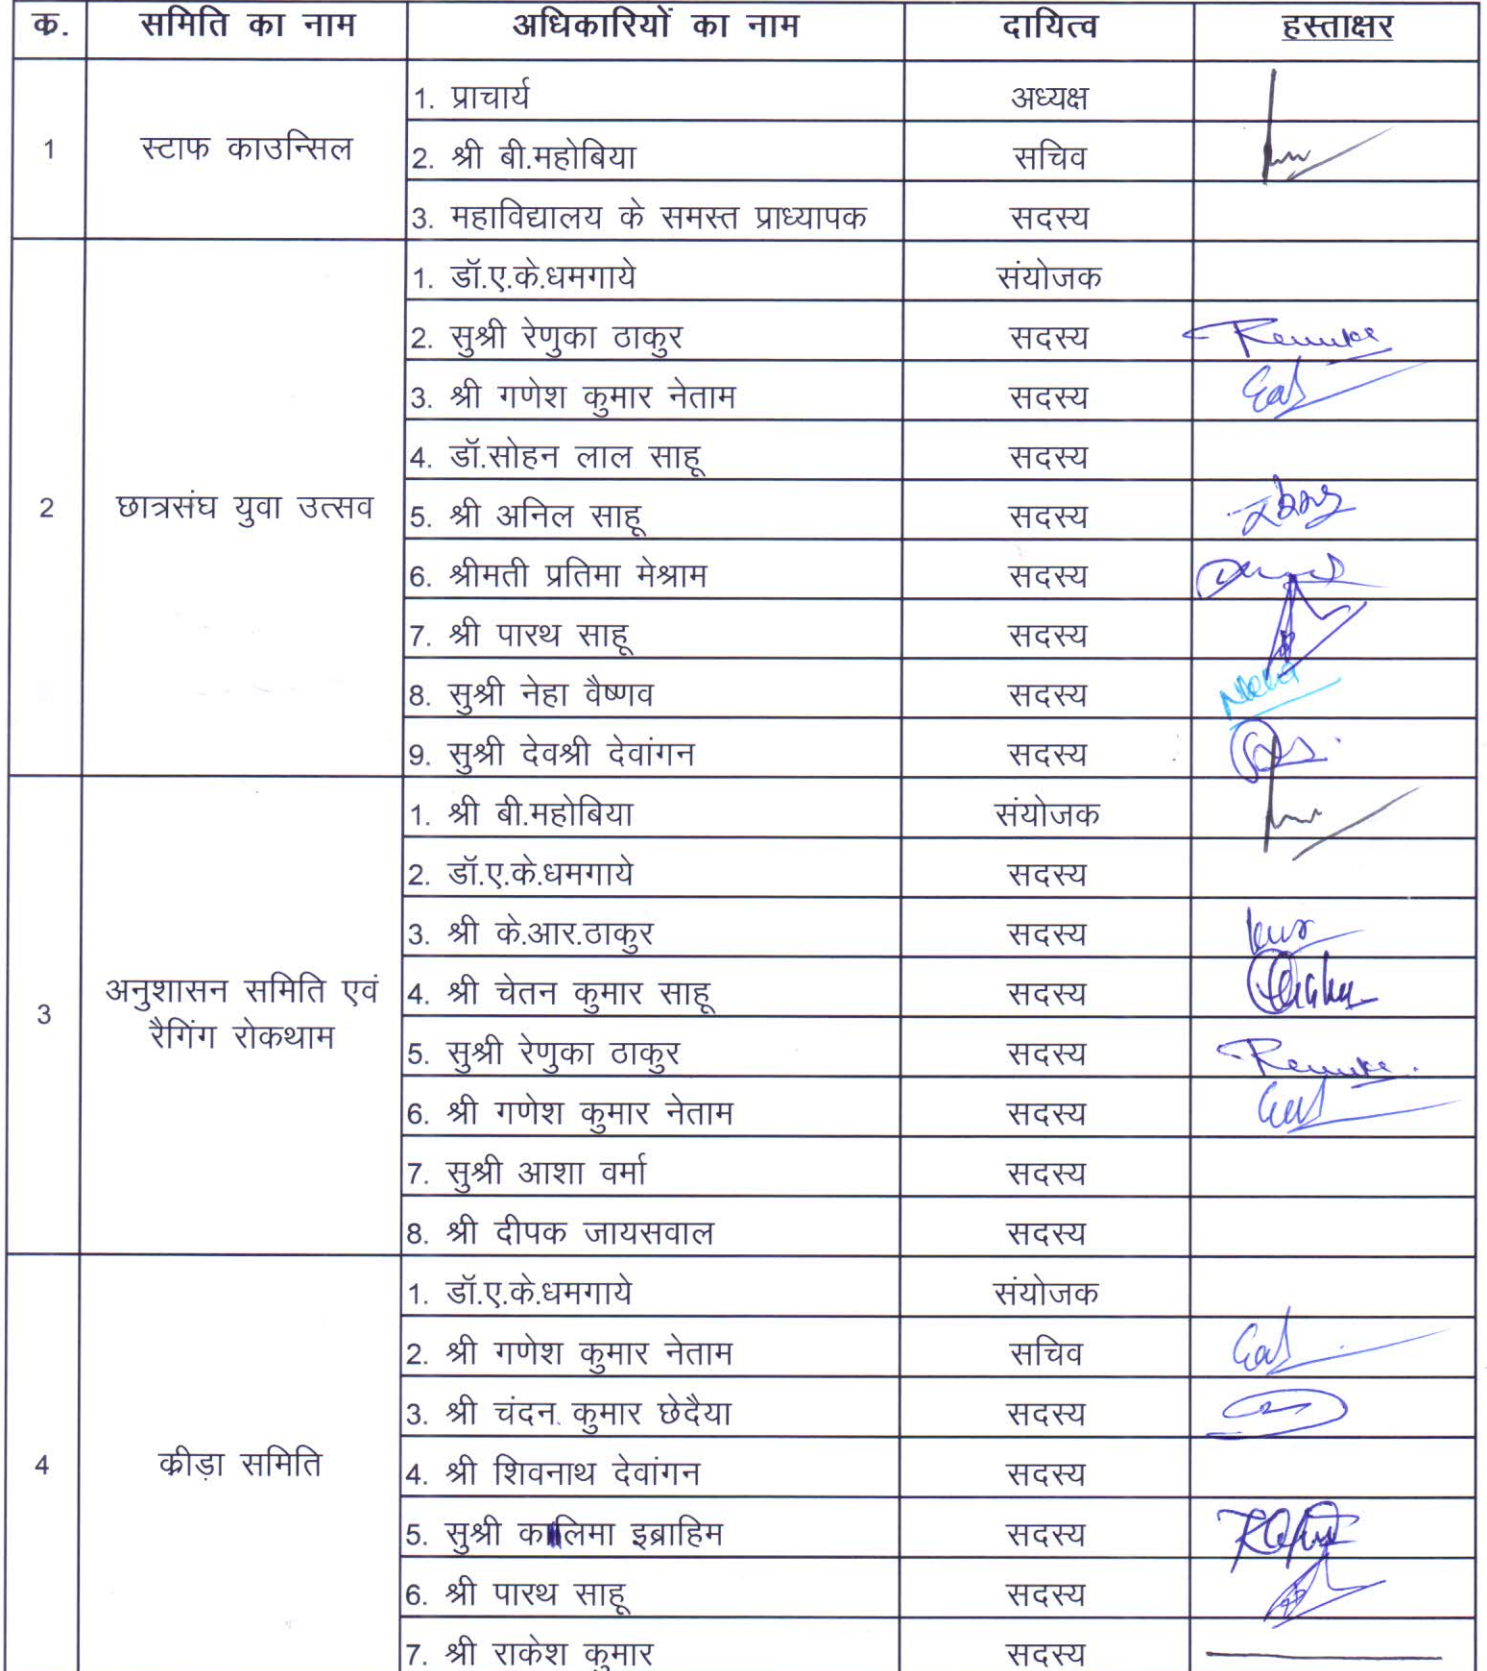 क. समिति का नाम अधिकारियों का नाम दायित्व हस्ताक्षर
1 स्टाफ काउन्सिल
1. प्राचार्य अध्यक्ष
2. श्री बी.महोबिया सचिव
3. महाविद्यालय के समस्त प्राध्यापक सदस्य
2 छात्रसंघ युवा उत्सव
1. डॉ.ए.के.धमगाये संयोजक
2. सुश्री रेणुका ठाकुर सदस्य Renuka
3. श्री गणेश कुमार नेताम सदस्य
4. डॉ.सोहन लाल साहू सदस्य
5. श्री अनिल साहू सदस्य
6. श्रीमती प्रतिमा मेश्राम सदस्य
7. श्री पारथ साहू सदस्य
8. सुश्री नेहा वैष्णव सदस्य Neha
9. सुश्री देवश्री देवांगन सदस्य
3 अनुशासन समिति एवं
रैगिंग रोकथाम
1. श्री बी.महोबिया संयोजक
2. डॉ.ए.के.धमगाये सदस्य
3. श्री के.आर.ठाकुर सदस्य
4. श्री चेतन कुमार साहू सदस्य
5. सुश्री रेणुका ठाकुर सदस्य Renuka
6. श्री गणेश कुमार नेताम सदस्य
7. सुश्री आशा वर्मा सदस्य
8. श्री दीपक जायसवाल सदस्य
4 कीड़ा समिति
1. डॉ.ए.के.धमगाये संयोजक
2. श्री गणेश कुमार नेताम सचिव
3. श्री चंदन कुमार छेदैया सदस्य
4. श्री शिवनाथ देवांगन सदस्य
5. सुश्री कालिमा इब्राहिम सदस्य
6. श्री पारथ साहू सदस्य
7. श्री राकेश कुमार सदस्य